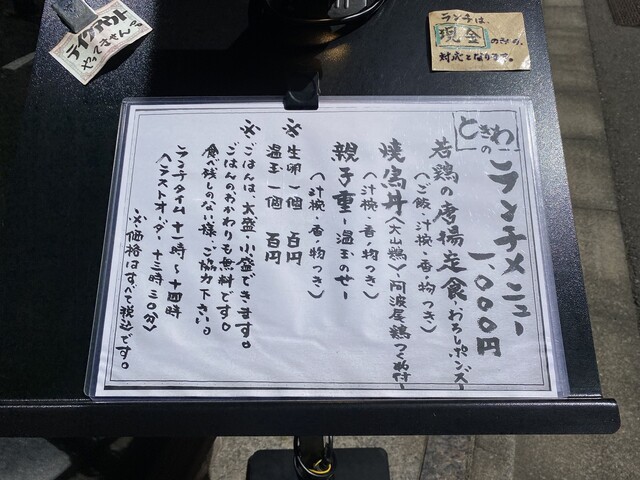 テイクアウト
やってません。
ランチは、
現金のみの、
対応となります。
ときわの
ランチメニュー
1,000円
若鶏の唐揚定食-おろしポンズ-
(ご飯・汁椀・香ノ物つき)
焼鳥丼(大山鶏)-阿波尾鶏つくね付-
(汁椀・香ノ物つき)
親子重-温玉のせ-
(汁椀・香ノ物つき)
※生卵一個 百円
温玉一個 百円
※ごはんは大盛・小盛できます。
ごはんのおかわりも無料です。
食べ残しのない様、ご協力下さい。
ランチタイム十一時〜十四時
(ラストオーダー十三時三〇分)
※価格はすべて税込です。